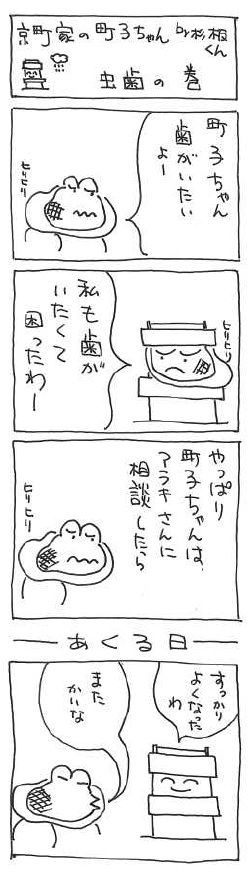 京町家の町子ちゃん by杉相くん
虫歯の巻
町子ちゃん
歯がいたい
よー
ヒリヒリ
私も歯が
いたくて
困ったわー
ヒリヒリ
やっぱり
町子ちゃんは
アラキさんに
相談したら
ヒリヒリ
あくる日
すっかり
よくなった
わ
また
かいな